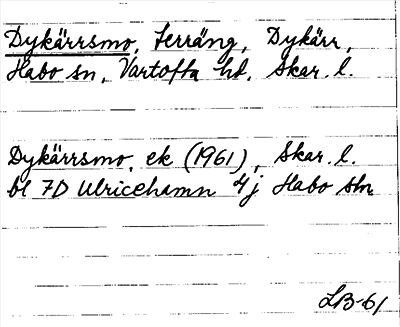 Dykärrsmo, terräng, Dykärr,
Habo sn, Vartofta hd, Skar. l.
Dykärrsmo, ek (1961), Skar. l.
bl 7D Ulricehamn 4j Habo sln
LB-61